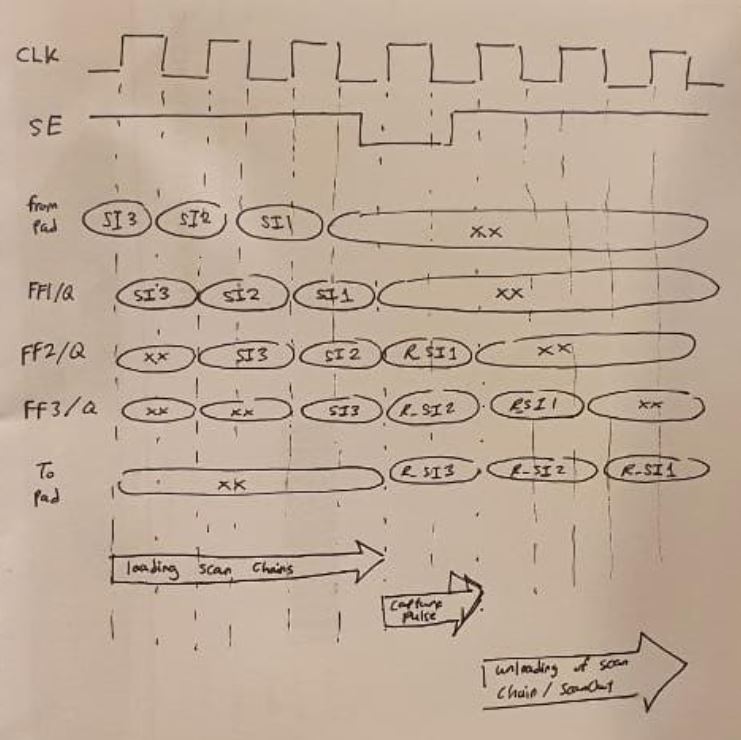 CLK
SE
from
Pad
SI3 SI2 SI1 xx
FF1/Q SI3 SI2 SI1 xx
FF2/Q xx SI3 SI2 R_SI1 xx
FF3/Q xx xx SI3 R_SI2 RSI1 xx
To
Pad
xx R_SI3 R_SI2 R_SI1
loading scan chains
Capture
Pulse
unloading of scan
Chain / ScanOut